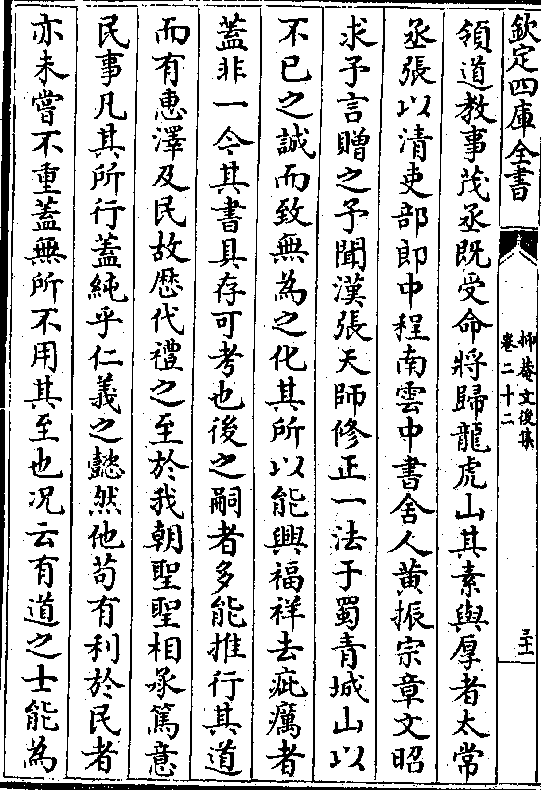 欽定四庫全書
抑菴文後集
卷二十二
三十一
領道教事茂丞既受命將歸龍虎山其素與厚者太常
丞張以清吏部郎中程南雲中書舍人黄振宗章文昭
求予言贈之予聞漢張天師修正一法于蜀青城山以
不已之誠而致無為之化其所以能興福祥去疵癘者
蓋非一今其書具存可考也後之嗣者多能推行其道
而有惠澤及民故歴代禮之至於我朝聖聖相承篤意
民事凡其所行蓋純乎仁義之懿然他苟有利於民者
亦未嘗不重蓋無所不用其至也况云有道之士能為